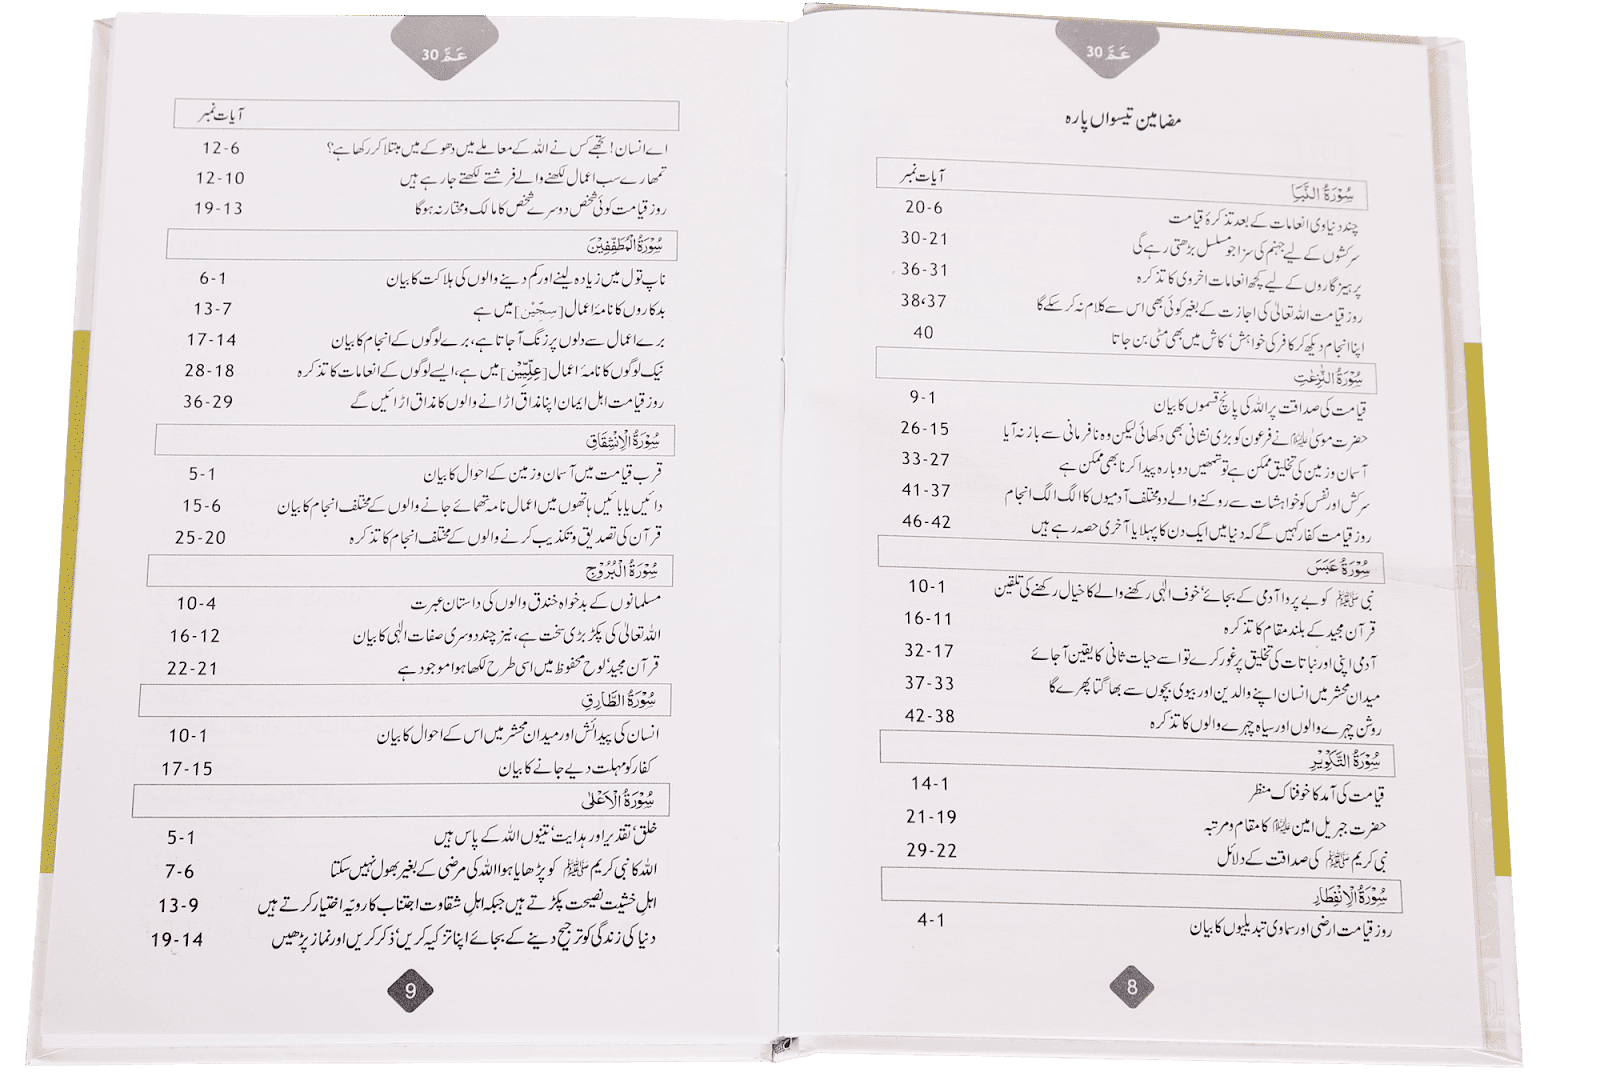 عَمَّ 30
مضامین تیسواں پارہ
سُوْرَةُ النَّبَاِ آیات نمبر
چند دنیاوی انعامات کے بعد تذکرۂ قیامت 6-20
سرکشوں کے لیے جہنم کی سزا جو مسلسل بڑھتی رہے گی 21-30
پرہیزگاروں کے لیے کچھ انعامات اخروی کا تذکرہ 31-36
روز قیامت اللہ تعالیٰ کی اجازت کے بغیر کوئی بھی اس سے کلام نہ کرسکے گا 37،38
اپنا انجام دیکھ کر کافر کی خواہش‘ کاش میں بھی مٹی بن جاتا 40
سُوْرَةُ النّٰزِعٰتِ
قیامت کی صداقت پر اللہ کی پانچ قسموں کا بیان 1-9
حضرت موسیٰ علیہ السلام نے فرعون کو بڑی نشانی بھی دکھائی لیکن وہ نافرمانی سے باز نہ آیا 15-26
آسمان و زمین کی تخلیق ممکن ہے تو تمھیں دوبارہ پیدا کرنا بھی ممکن ہے 27-33
سرکش اور نفس کو خواہشات سے روکنے والے دو مختلف آدمیوں کا الگ الگ انجام 37-41
روز قیامت کفار کہیں گے کہ دنیا میں ایک دن کا پہلا یا آخری حصہ رہے ہیں 42-46
سُوْرَةُ عَبَسَ
نبی ﷺ کو بے پروا آدمی کے بجائے‘ خوف الٰہی رکھنے والے کا خیال رکھنے کی تلقین 1-10
قرآن مجید کے بلند مقام کا تذکرہ 11-16
آدمی اپنی اور نباتات کی تخلیق پر غور کرے تو اسے حیات ثانی کا یقین آجائے 17-32
میدان محشر میں انسان اپنے والدین اور بیوی بچوں سے بھاگتا پھرے گا 33-37
روشن چہرے والوں اور سیاہ چہرے والوں کا تذکرہ 38-42
سُوْرَةُ التَّكْوِيْرِ
قیامت کی آمد کا خوفناک منظر 1-14
حضرت جبریل امین علیہ السلام کا مقام و مرتبہ 19-21
نبی کریم ﷺ کی صداقت کے دلائل 22-29
سُوْرَةُ الْاِنْفِطَارِ
روز قیامت ارضی اور سماوی تبدیلیوں کا بیان 1-4
8
عَمَّ 30
آیات نمبر
اے انسان! تجھے کس نے اللہ کے معاملے میں دھوکے میں مبتلا کر رکھا ہے؟ 6-12
تمھارے سب اعمال لکھنے والے فرشتے لکھتے جارہے ہیں 10-12
روز قیامت کوئی شخص دوسرے شخص کا مالک و مختار نہ ہوگا 13-19
سُوْرَةُ الْمُطَفِّفِيْنَ
ناپ تول میں زیادہ لینے اور کم دینے والوں کی ہلاکت کا بیان 1-6
بدکاروں کا نامۂ اعمال [سِجِّيْن] میں ہے 7-13
برے اعمال سے دلوں پر زنگ آجاتا ہے، برے لوگوں کے انجام کا بیان 14-17
نیک لوگوں کا نامۂ اعمال [عِلِّيِّيْن] میں ہے، ایسے لوگوں کے انعامات کا تذکرہ 18-28
روز قیامت اہل ایمان اپنا مذاق اڑانے والوں کا مذاق اڑائیں گے 29-36
سُوْرَةُ الْاِنْشِقَاقِ
قرب قیامت میں آسمان و زمین کے احوال کا بیان 1-5
دائیں یا بائیں ہاتھوں میں اعمال نامہ تھمائے جانے والوں کے مختلف انجام کا بیان 6-15
قرآن کی تصدیق و تکذیب کرنے والوں کے مختلف انجام کا تذکرہ 20-25
سُوْرَةُ الْبُرُوْجِ
مسلمانوں کے بدخواہ خندق والوں کی داستان عبرت 4-10
اللہ تعالیٰ کی پکڑ بڑی سخت ہے، نیز چند دوسری صفات الٰہی کا بیان 12-16
قرآن مجید‘ لوح محفوظ میں اسی طرح لکھا ہوا موجود ہے 21-22
سُوْرَةُ الطَّارِقِ
انسان کی پیدائش اور میدان محشر میں اس کے احوال کا بیان 1-10
کفار کو مہلت دیے جانے کا بیان 15-17
سُوْرَةُ الْاَعْلٰى
خلق‘ تقدیر اور ہدایت‘ تینوں اللہ کے پاس ہیں 1-5
اللہ کا نبی کریم ﷺ کو پڑھایا ہوا اللہ کی مرضی کے بغیر بھول نہیں سکتا 6-7
اہلِ خشیت نصیحت پکڑتے ہیں جبکہ اہلِ شقاوت اجتناب کا رویّہ اختیار کرتے ہیں 9-13
دنیا کی زندگی کو ترجیح دینے کے بجائے اپنا تزکیہ کریں‘ ذکر کریں اور نماز پڑھیں 14-19
9